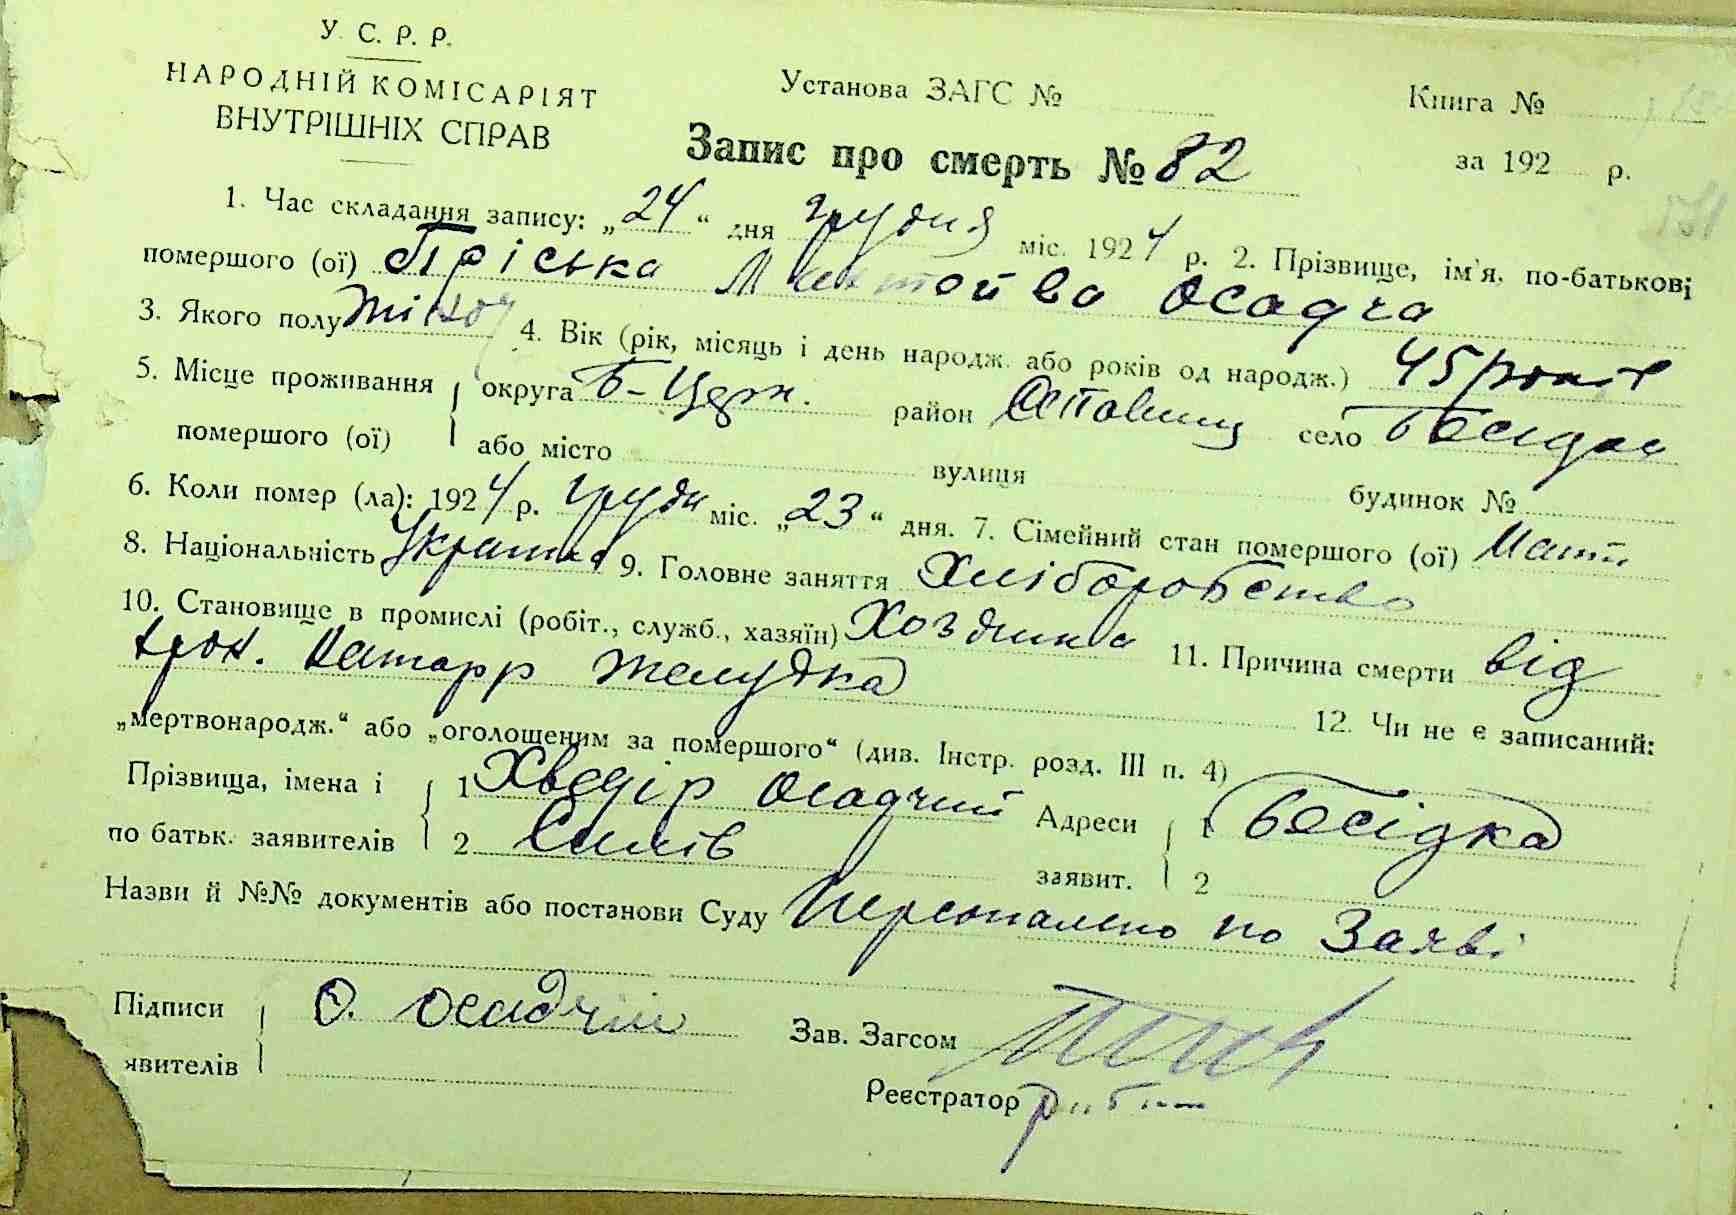 У. С. Р. Р.
НАРОДНІЙ КОМІСАРІЯТ
ВНУТРІШНІХ СПРАВ
Установа ЗАГС №
Книга №
Запис про смерть № 82
за 192 р.
1. Час складання запису: „24“ дня грудня міс. 1924 р. 2. Прізвище, ім'я, по-батькові
помершого (ої) Пріська Осадча
3. Якого полу жіноч 4. Вік (рік, місяць і день народж. або років од народж.) 45 років
5. Місце проживання округа Б-Церк. район село Бесідка
помершого (ої) або місто вулиця будинок №
6. Коли помер (ла): 1924 р. грудн міс. „23“ дня. 7. Сімейний стан помершого (ої) Мати
8. Національність Українка 9. Головне заняття Хліборобство
10. Становище в промислі (робіт., служб., хазяїн) 11. Причина смерти від
хрон. катарр желудка
12. Чи не є записаний:
„мертвонародж.“ або „оголошеним за помершого“ (див. Інстр. розд. III п. 4)
Прізвища, імена і 1 Хведір Осадчий Адреси 1 Бесідка
по батьк. заявителів 2 заявит. 2
Назви й №№ документів або постанови Суду Персонально по Заяві
Підписи О. Осадчий Зав. Загсом
явителів
Реєстратор